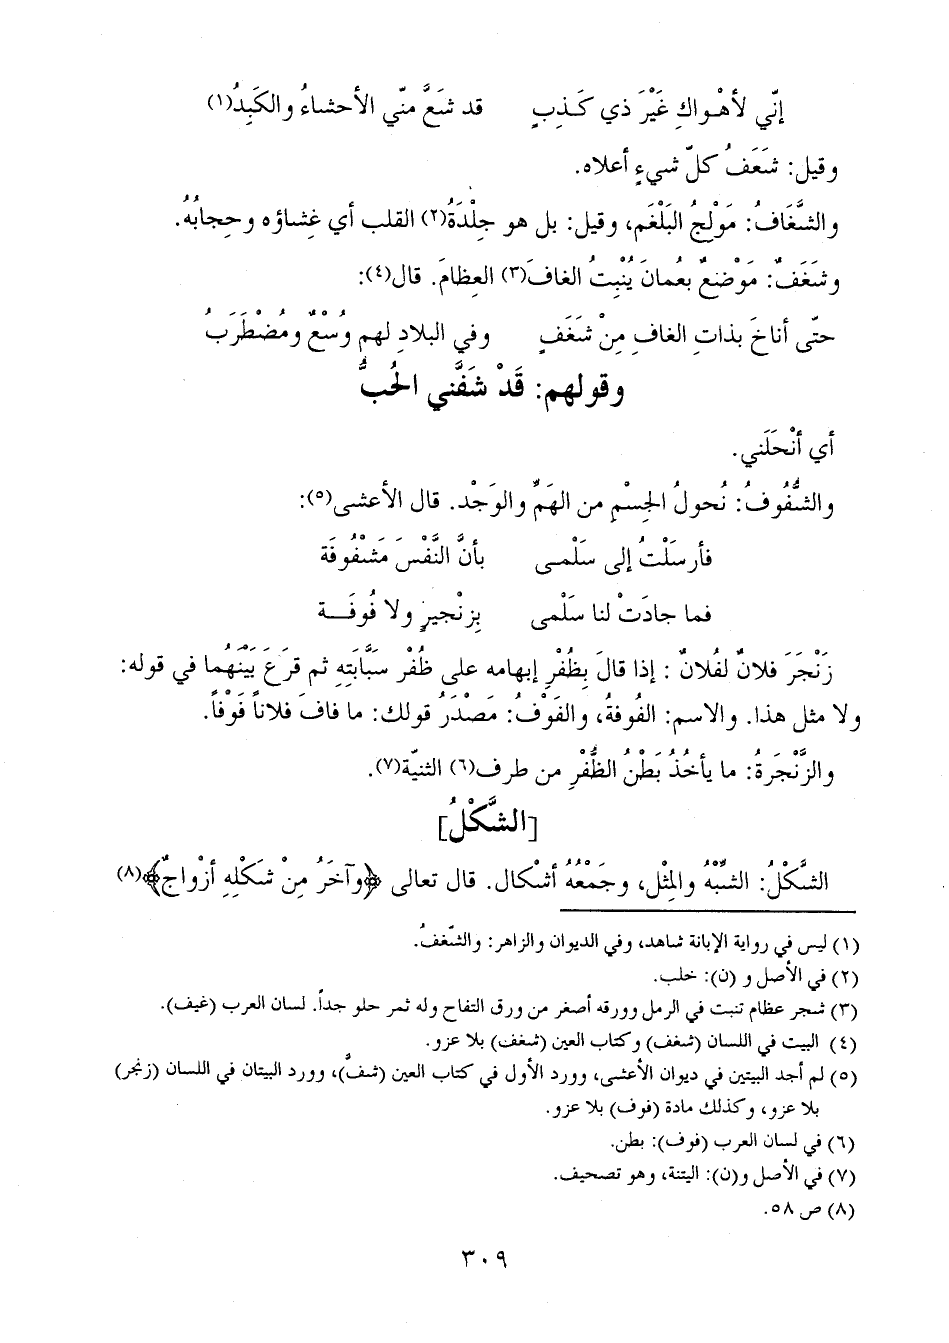 إنّي لأهْواكِ غَيْرَ ذي كَذبٍ قد شَعَّ منّي الأحشاءُ والكَبِدُ(١)
وقيل: شَعَفُ كلّ شيءٍ أعلاه.
والشَّغَافُ: مَوْلِجُ البَلْغَم، وقيل: بل هو جِلْدَةُ(٢) القلب أي غِشاؤه وحجابُهُ.
وشَغَفٌ: مَوْضعٌ بعُمانَ يُنْبِتُ الغافَ(٣) العِظامَ. قال(٤):
حتّى أناخَ بذاتِ الغافِ مِنْ شَغَفٍ وفي البلادِ لهم وُسْعٌ ومُضْطَرَبُ
وقولهم: قَدْ شَفَّني الحُبُّ
أي أنْحَلَني.
والشُّفُوفُ: نُحولُ الجِسْمِ من الهَمِّ والوَجْد. قال الأعشى(٥):
فأرسَلْتُ إلى سَلْمى بأنَّ النَّفْسَ مَشْفُوفَة
فما جادَتْ لنا سَلْمى بِزنْجيرٍ ولا فُوفَة
زَنْجَرَ فلانٌ لفُلانٌ : إذا قالَ بِظُفْرِ إبهامه على ظُفْر سَبَّابَتِهِ ثم قرَعَ بَيْنَهُما في قوله:
ولا مثل هذا. والاسم: الفُوفةُ، والفَوْفُ: مَصْدَرُ قولك: ما فافَ فلاناً فَوْفاً.
والزَّنْجَرةُ: ما يأخُذُ بَطْنُ الظُّفْرِ من طرف(٦) الثنيّة(٧).
[الشَّكْلُ]
الشَّكْلُ: الشِّبْهُ والمِثْل، وجَمْعُهُ أشْكال. قال تعالى ﴿وآخَرُ مِنْ شَكْلِهِ أزْواجٌ﴾(٨)
(١) ليس في رواية الإبانة شاهد، وفي الديوان والزاهر: والشّغفُ.
(٢) في الأصل و (ن): خلب.
(٣) شجر عظام تنبت في الرمل وورقه أصغر من ورق التفاح وله ثمر حلو جداً. لسان العرب (غيف).
(٤) البيت في اللسان (شغف) وكتاب العين (شغف) بلا عزو.
(٥) لم أجد البيتين في ديوان الأعشى، وورد الأول في كتاب العين (شفّ)، وورد البيتان في اللسان (زنجر)
بلا عزو، وكذلك مادة (فوف) بلا عزو.
(٦) في لسان العرب (فوف): بطن.
(٧) في الأصل و(ن): اليتنة، وهو تصحيف.
(٨) ص ٥٨.
٣٠٩